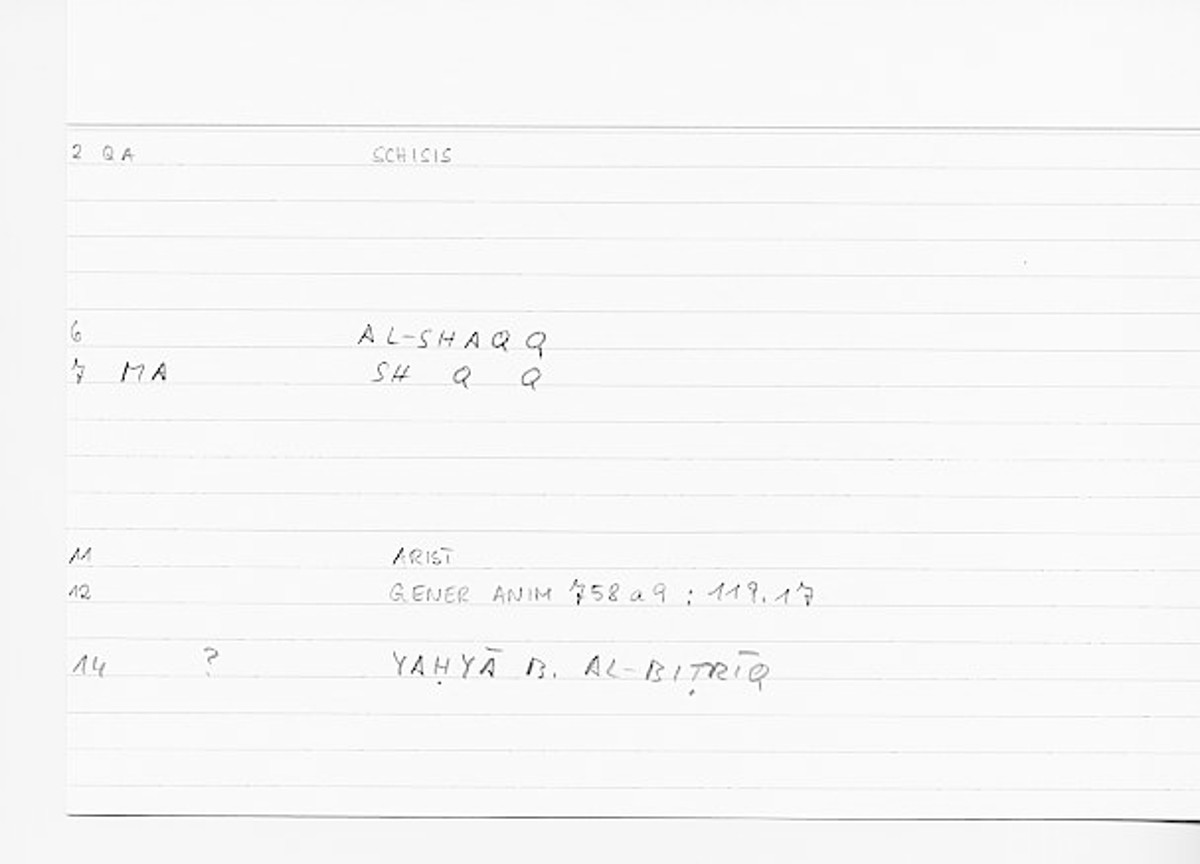 2 QA SCHISIS
6 AL-SHAQQ
7 MA SH Q Q
11 ARIST
12 GENER ANIM 758a9 : 119.17
14 ? YAḤYĀ B. AL-BIṬRĪQ